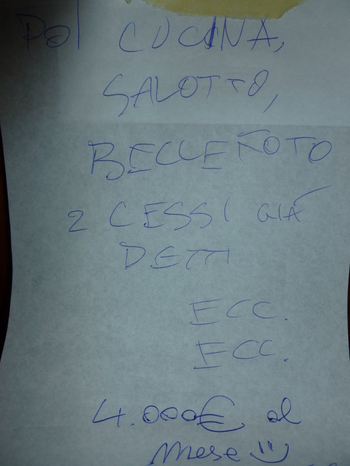 POI CUCINA,
SALOTTO,
2 CESSI GIÀ
DETTI
ECC.
ECC.
4.000€ al
mese